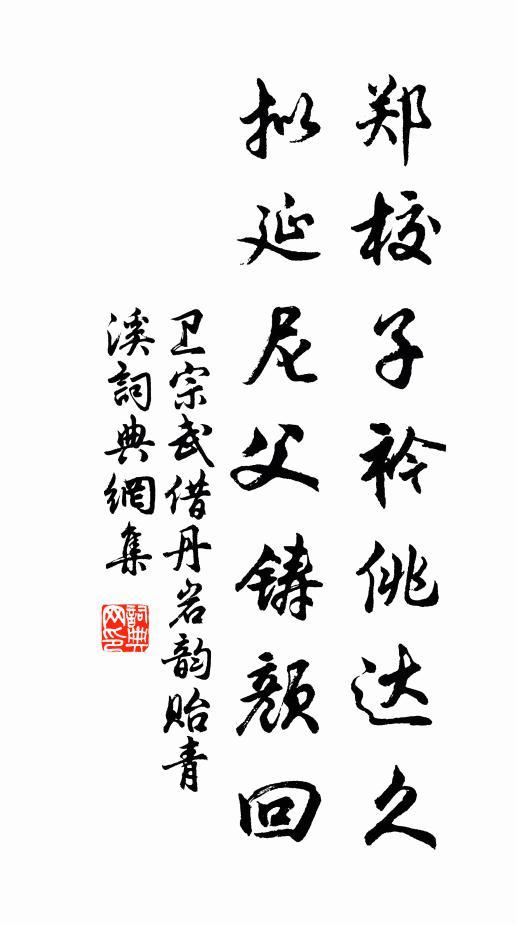 郑校子衿佻达久
拟延尼父铸颜回
卫宗武借丹岩韵贻青
溪詞典網集
詞典网印